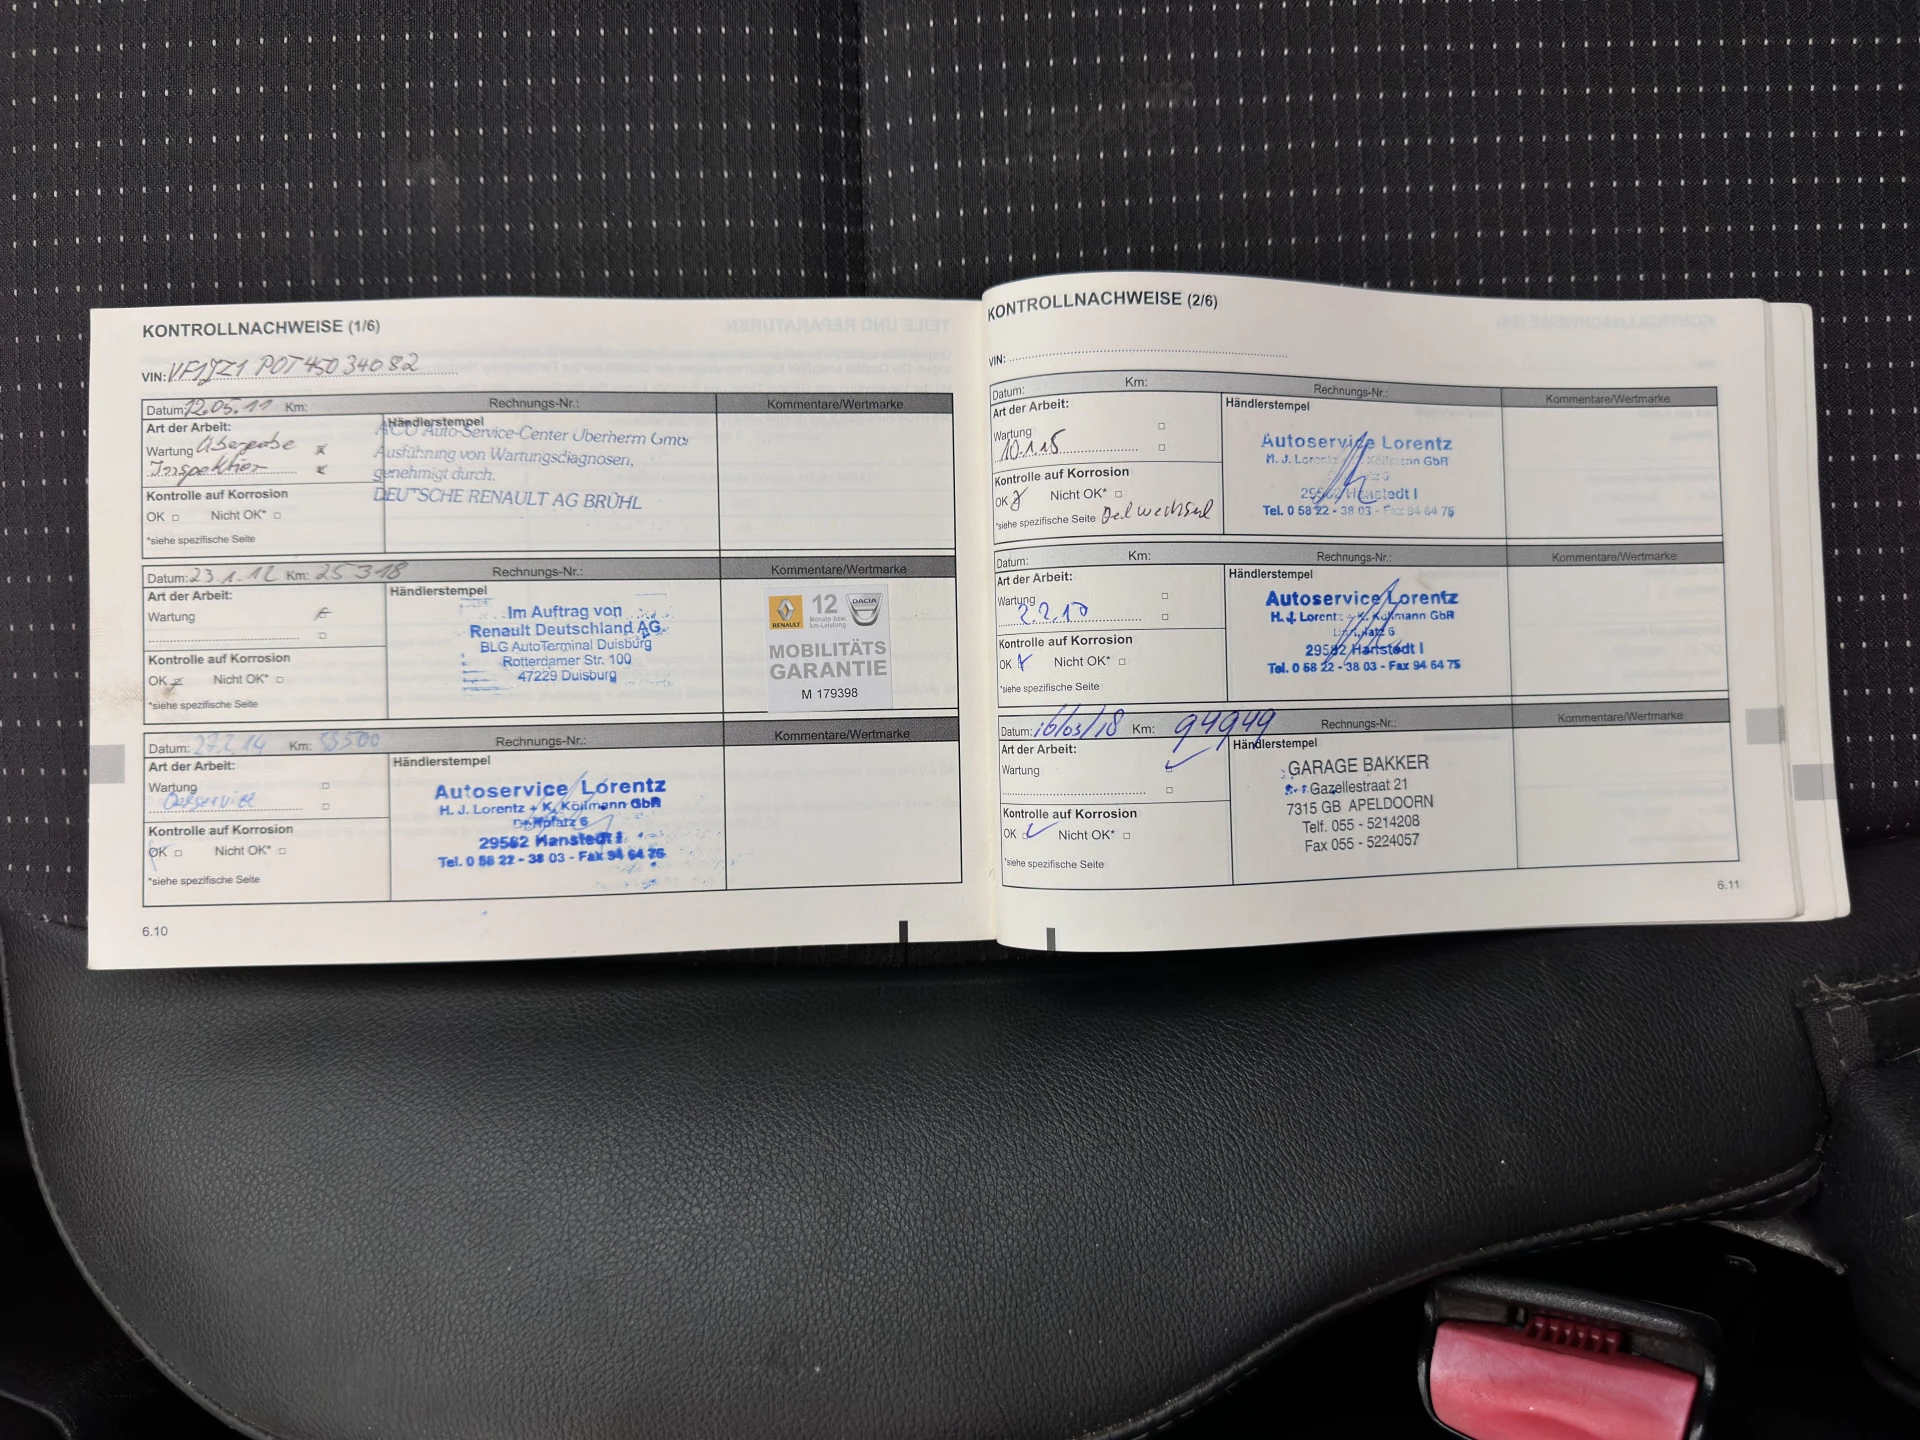 KONTROLLNACHWEISE (1/6)
VIN: VF1JZ1 POT45034082
Datum: 12.05.11 Km: Rechnungs-Nr.: Kommentare/Wertmarke
Art der Arbeit:
Wartung Übergabe
Inspektion
Kontrolle auf Korrosion
OK Nicht OK*
*siehe spezifische Seite
Händlerstempel
ACU Auto-Service-Center Überherrn GmbH
Ausführung von Wartungsdiagnosen,
genehmigt durch.
DEUTSCHE RENAULT AG BRÜHL
Datum: 23.1.12 Km: 25318 Rechnungs-Nr.: Kommentare/Wertmarke
Art der Arbeit:
Wartung
Kontrolle auf Korrosion
OK Nicht OK*
*siehe spezifische Seite
Händlerstempel
Im Auftrag von
Renault Deutschland AG
BLG AutoTerminal Duisburg
Rotterdamer Str. 100
47229 Duisburg
RENAULT 12 Monate bzw. km-Leistung DACIA
MOBILITÄTS
GARANTIE
M 179398
Datum: 27.2.14 Km: 53500 Rechnungs-Nr.: Kommentare/Wertmarke
Art der Arbeit:
Wartung
Oelservice
Kontrolle auf Korrosion
OK Nicht OK*
*siehe spezifische Seite
Händlerstempel
Autoservice Lorentz
H. J. Lorentz + K. Köllmann GbR
29582 Hanstedt I
Tel. 0 58 22 - 38 03 - Fax 94 64 75
6.10
KONTROLLNACHWEISE (2/6)
VIN:
Datum: Km: Rechnungs-Nr.: Kommentare/Wertmarke
Art der Arbeit:
Wartung
10.1.15
Kontrolle auf Korrosion
OK Nicht OK*
*siehe spezifische Seite Oelwechsel
Händlerstempel
Autoservice Lorentz
H. J. Lorentz + K. Köllmann GbR
29582 Hanstedt I
Tel. 0 58 22 - 38 03 - Fax 94 64 75
Datum: Km: Rechnungs-Nr.: Kommentare/Wertmarke
Art der Arbeit:
Wartung
Kontrolle auf Korrosion
OK Nicht OK*
*siehe spezifische Seite
Händlerstempel
Autoservice Lorentz
H. J. Lorentz + K. Köllmann GbR
29582 Hanstedt I
Tel. 0 58 22 - 38 03 - Fax 94 64 75
Datum: 16/03/18 Km: 94949 Rechnungs-Nr.: Kommentare/Wertmarke
Art der Arbeit:
Wartung
Kontrolle auf Korrosion
OK Nicht OK*
*siehe spezifische Seite
Händlerstempel
GARAGE BAKKER
Gazellestraat 21
7315 GB APELDOORN
Telf. 055 - 5214208
Fax 055 - 5224057
6.11